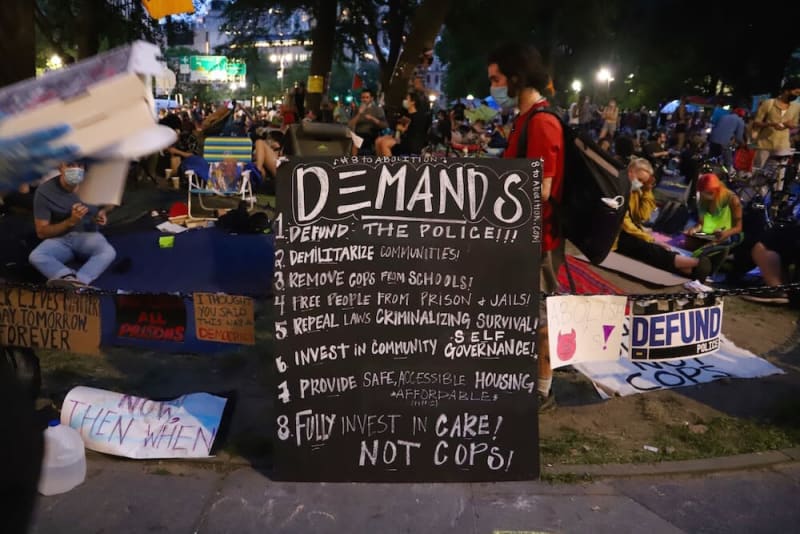 #8 to ABOLITION
DEMANDS
1. DEFUND THE POLICE!!!
2 DEMILITARIZE COMMUNITIES!
3 REMOVE COPS FROM SCHOOLS!
4 FREE PEOPLE FROM PRISON & JAILS!
5 REPEAL LAWS CRIMINALIZING SURVIVAL!
6. INVEST IN COMMUNITY SELF GOVERNANCE!
7 PROVIDE SAFE, ACCESSIBLE HOUSING
*AFFORDABLE*
8. FULLY INVEST IN CARE!
NOT COPS!
8 to ABOLITION.COM
LIVES MATTER
TODAY TOMORROW
FOREVER
ALL
PRISONS
I THOUGH
YOU SAID
THIS WAS A
DEMOCRACY
NOW,
THEN WHEN
DEFUND
POLICE
COPS